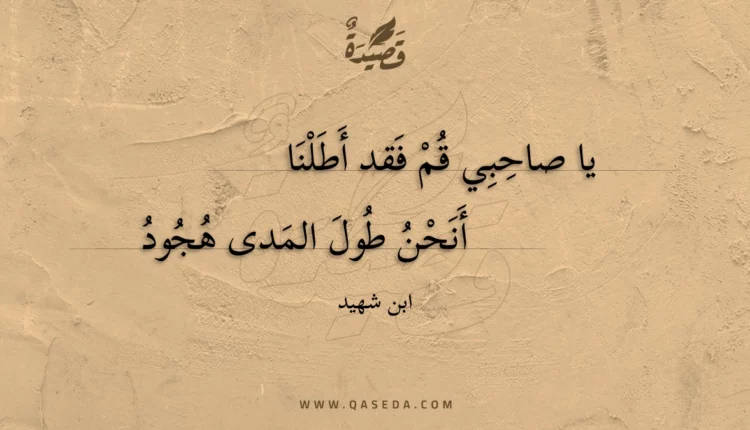 قَصِيدَةٌ
يا صاحِبِي قُمْ فَقد أَطَلْنَا
أَنَحْنُ طُولَ المَدى هُجُودُ
ابن شهيد
WWW.QASEDA.COM